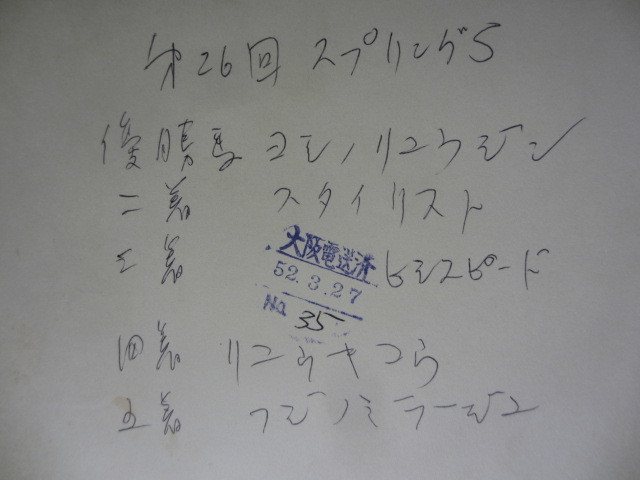 第26回 スプリングS
優勝馬 ヨシノリユウジン
二着 スタイリスト
三着 ヒシスピード
大阪電送済
52.3.27
No. 35
四着 リユウキコウ
五着 フジノミラージユ